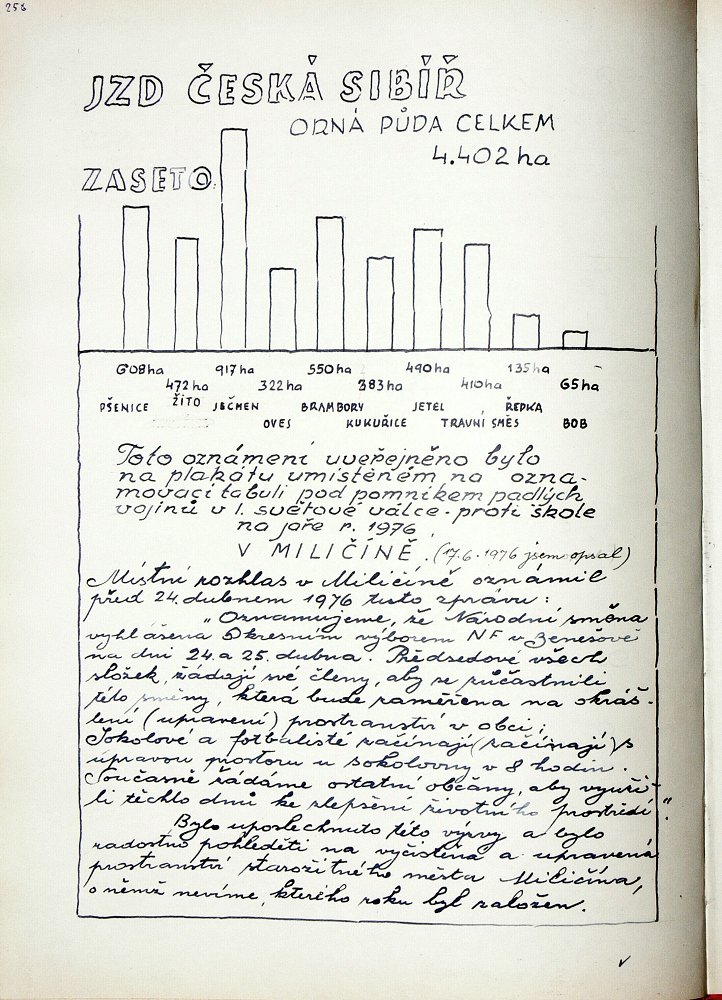 258
JZD ČESKÁ SIBÍŘ
ORNÁ PŮDA CELKEM
4.402 ha
ZASETO
608 ha 917 ha 550 ha 490 ha 135 ha
472 ha 322 ha 383 ha 410 ha 65 ha
PŠENICE ŽITO JEČMEN BRAMBORY JETEL ŘEDKA
OVES KUKUŘICE TRAVNÍ SMĚS BOB
Toto oznámení uveřejněno bylo
na plakátu umístěném na ozna-
movací tabuli pod pomníkem padlých
vojínů v I. světové válce - proti škole
na jaře r. 1976
V MILIČÍNĚ. (17.6.1976 jsem opsal)
Místní rozhlas v Miličíně oznámil
před 24. dubnem 1976 tuto zprávu:
„Oznamujeme, že Národní směna
vyhlášena Okresním výborem NF v Benešově
na dni 24. a 25. dubna. Předsedové všech
složek, žádají své členy, aby se zúčastnili
této směny, která bude zaměřena na okráš-
lení (upravení) prostranství v obci;
Sokolové a fotbalisté začínají (začínají) s
úpravou prostoru u sokolovny v 8 hodin.
Současně žádáme ostatní občany, aby využi-
li těchto dnů ke zlepšení životního prostředí".
Bylo uposlechnuto této výzvy a bylo
radostno pohleděti na vyčistěná a upravená
prostranství starožitného města Miličína,
o němž nevíme, kterého roku byl založen.